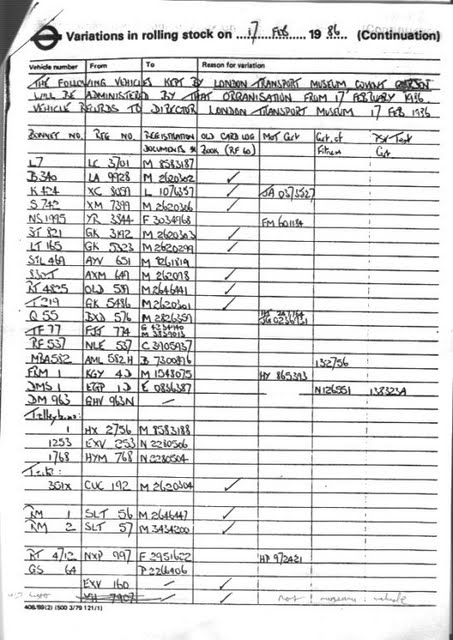 Variations in rolling stock on 17 FEB 1986 (Continuation)
Vehicle number From To Reason for variation
THE FOLLOWING VEHICLES KEPT BY LONDON TRANSPORT MUSEUM COVENT GARDEN
WILL BE ADMINISTERED BY THAT ORGANISATION FROM 17 FEBRUARY 1986
VEHICLE RECORDS TO DIRECTOR LONDON TRANSPORT MUSEUM 17 FEB 1986
BONNET NO. REG NO. REGISTRATION OLD CARD LOG MOT Cert Cert. of PSV Test
DOCUMENTS BOOK (RF 60) Fitness Cert
L7 LC 3701 M 8583187
B340 LA 9928 M 2620302 ✓
K 424 XC 8059 ✓
S 742 XM 7399 M 2620306 ✓
NS 1995 YR 3844 F 3034968 FM 601184
ST 821 GK 3192 M 2620303 ✓
LT 165 GK 5323 M 2620299 ✓
STL 469 AYV 651
AXM 649 M 262078 ✓
RT 4825 OLD 589 M 2646441 ✓
T 219 GK 5486 M 2620301 ✓
Q 55 DXD 576 M 2826359
TF 77 FJJ 774
RF 537 NLE 537 C 3905937
MBA 582 AML 582H B 7300896 132756
FRM 1 KGY 4D M 1543075 HY 865393
DMS 1 EGP 1D E 0836387 N126551 138323
DM 963 GHV 963N –
Trolleybuses:
1 HX 2756 M 8583188
1253 EXV 253 N 2280506
1768 HYM 768 N 2280504
351X CUC 192 M 2620304 ✓
RM 1 SLT 56 M 2646447 ✓
RM 2 SLT 57 M 3434200 ✓
RT 4712 NXP 997 F 2951622 HP 972421
GS 64 P 2266406
EXV 160 – ✓
✓ not museum vehicle
406/89(2) (500 3/79 121/1)